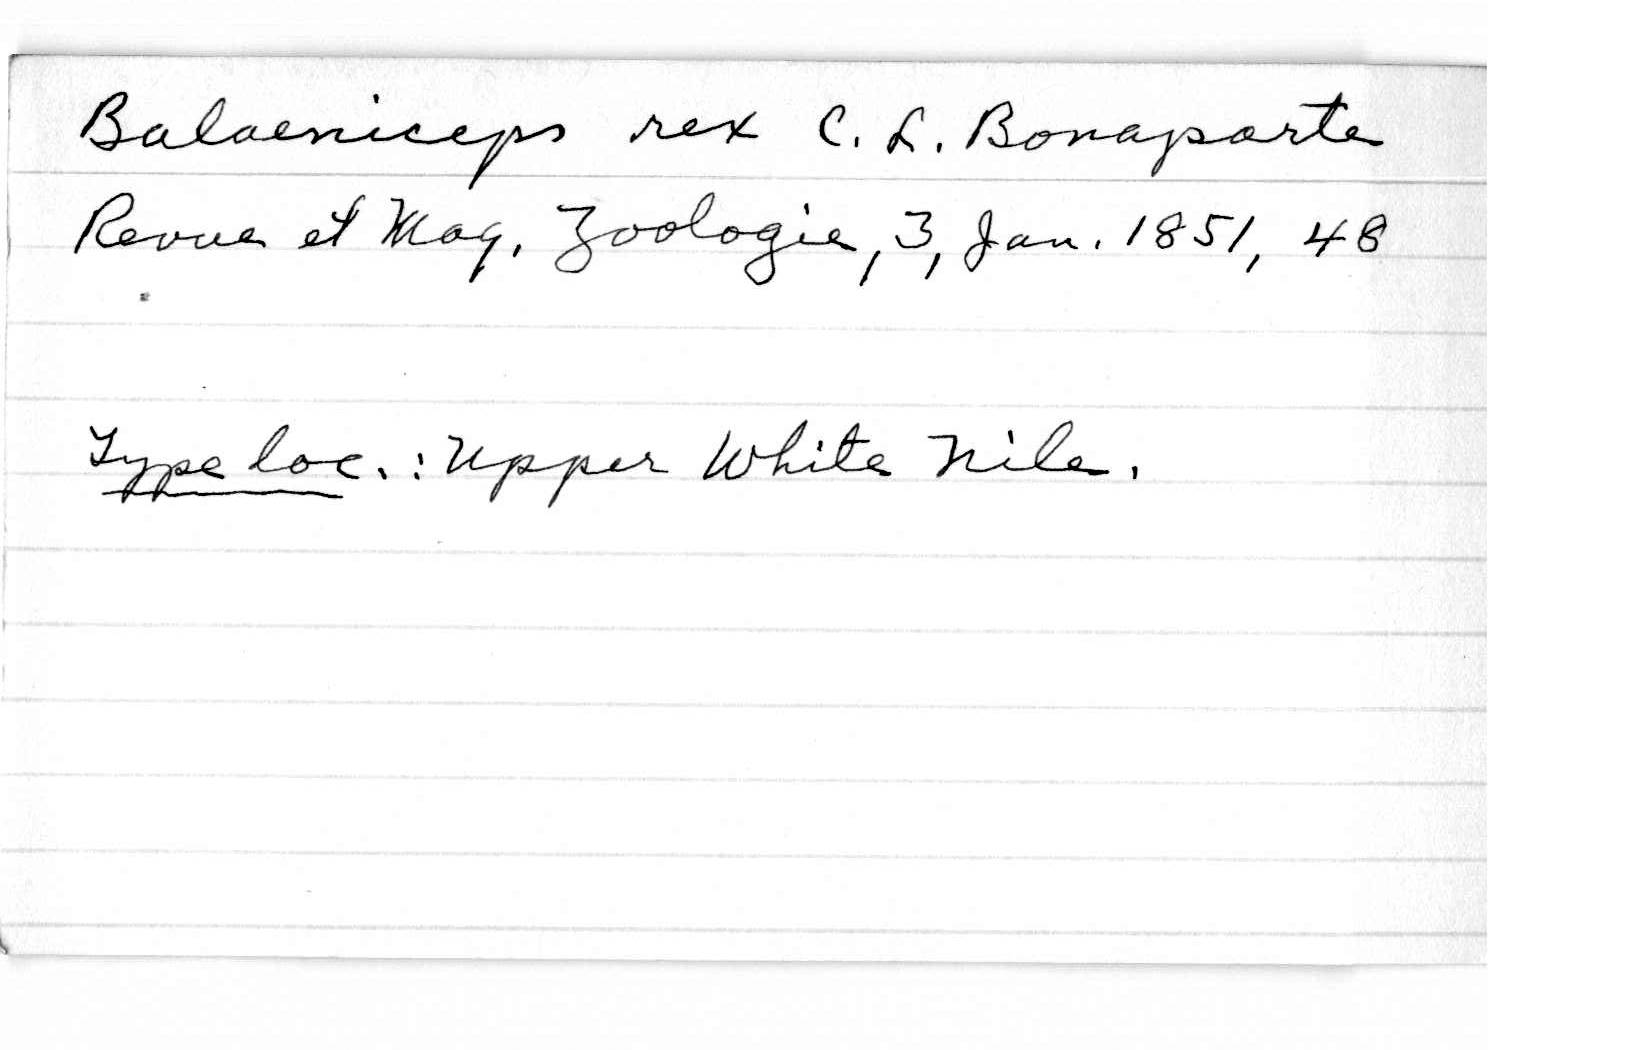 Balaeniceps rex C. L. Bonaparte
Revue et Mag. Zoologie, 3, Jan. 1851, 48
Type loc.: Upper White Nile.